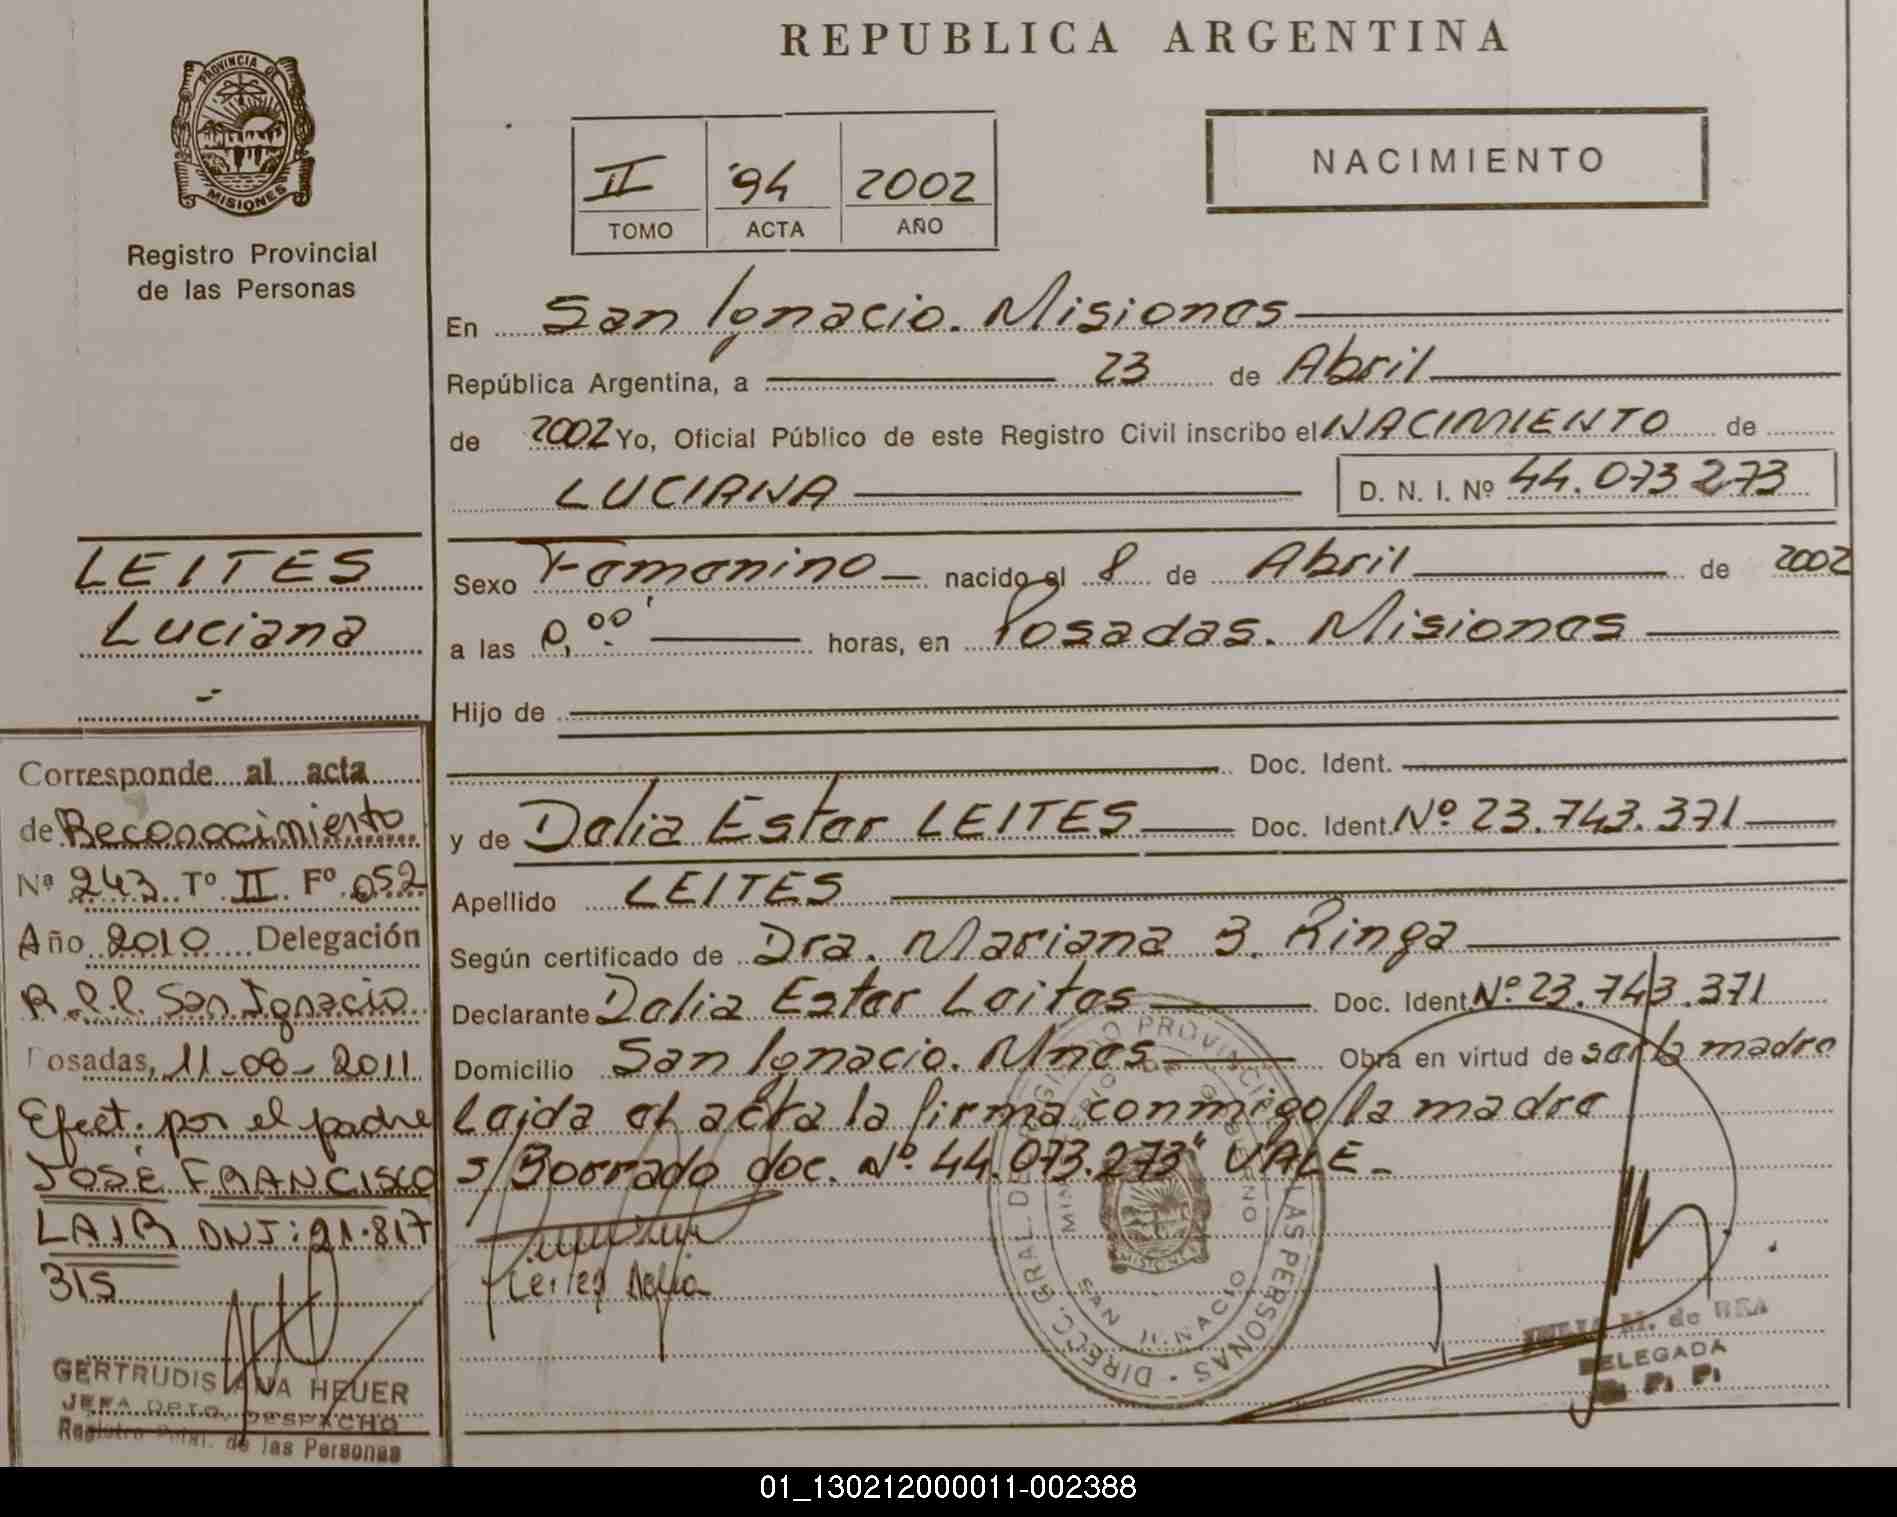 REPUBLICA ARGENTINA
PROVINCIA DE
MISIONES
Registro Provincial
de las Personas
II 94 2002
TOMO ACTA AÑO
NACIMIENTO
En San Ignacio. Misiones
República Argentina, a 23 de Abril
de 2002 Yo, Oficial Público de este Registro Civil inscribo el NACIMIENTO de
LUCIANA D. N. I. Nº 44.073 273
Sexo Femenino nacido el 8 de Abril de 2002
a las 0,00' horas, en Posadas. Misiones
Hijo de
Doc. Ident.
y de Delia Ester LEITES Doc. Ident. Nº 23.743.371
Apellido LEITES
Según certificado de Dra. Mariana B. Ringa
Declarante Delia Ester Leites Doc. Ident. Nº 23.743.371
Domicilio San Ignacio. Mnes Obra en virtud de ser la madre
Leida el acta la firma conmigo la madre
s/Borrado doc. Nº 44.073.273" VALE-
Leites Delia
DIRECC. GRAL. DEL REGISTRO PROVINCIAL DE LAS PERSONAS
MINISTERIO DE GOBIERNO
SAN IGNACIO
MISIONES
M. de BRA
DELEGADA
R. P. P.
LEITES
Luciana
-
Corresponde al acta
de Reconocimiento
Nª 243 Tº II Fº 052
Año 2010 Delegación
R.P.P. San Ignacio
Posadas, 11-08-2011
Efect. por el padre
JOSÉ FRANCISCO
LAIR DNI: 21.817
315
GERTRUDIS ANA HEUER
JEFA DPTO. DESPACHO
Registro Pcial. de las Personas
01_130212000011-002388